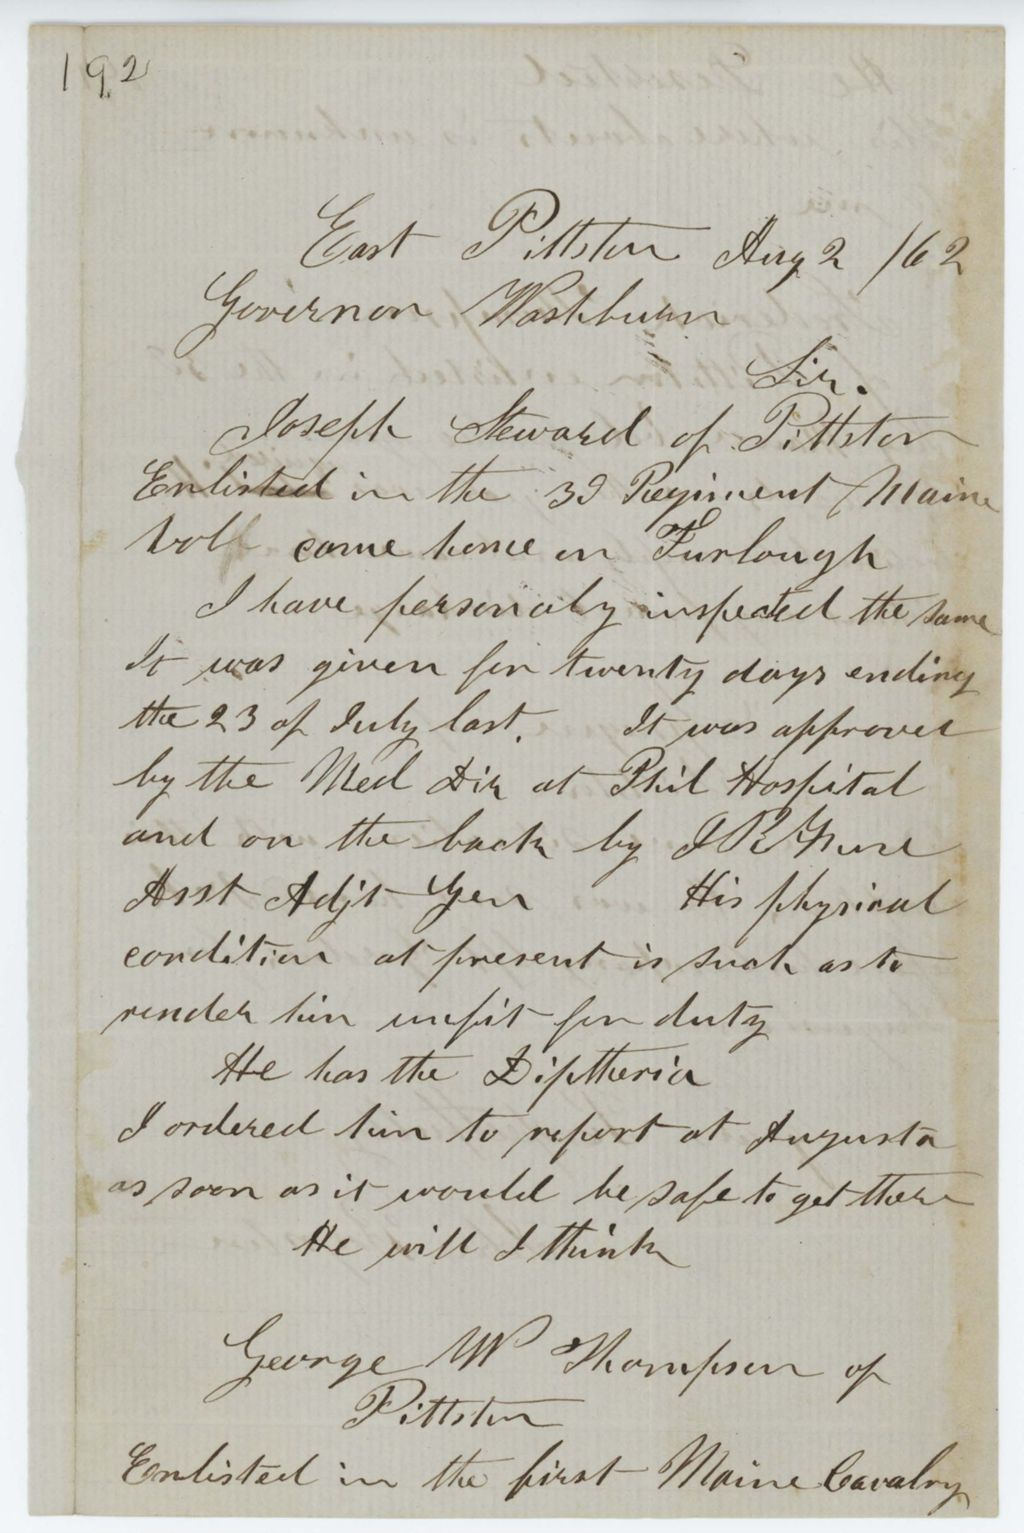 192
East Pittston Aug 2 /62
Governor Washburn
Sir.
Joseph Steward of Pittston
Enlisted in the 3d Regiment Maine
Voll come home on Furlough
I have personaly inspected the same
It was given for twenty days ending
the 23 of July last. It was approved
by the Med Dir at Phil Hospital
and on the back by J R
Asst Adjt Gen His physical
condition at present is such as to
render him unfit for duty
He has the Diptheria
I ordered him to report at Augusta
as soon as it would be safe to get there
He will I think
George W Thompson of
Pittston
Enlisted in the first Maine Cavalry